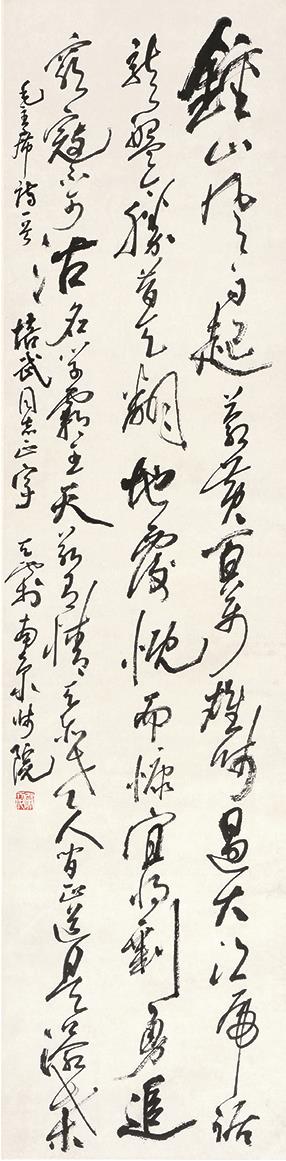 鍾山风雨起蒼黄百万雄师過大江虎踞
龙盤今勝昔天翻地覆慨而慷宜将剩勇追
窮寇不可沽名学霸王天若有情天亦老人间正道是滄桑
毛主席诗一首 培武同志正字 天池於南京师院